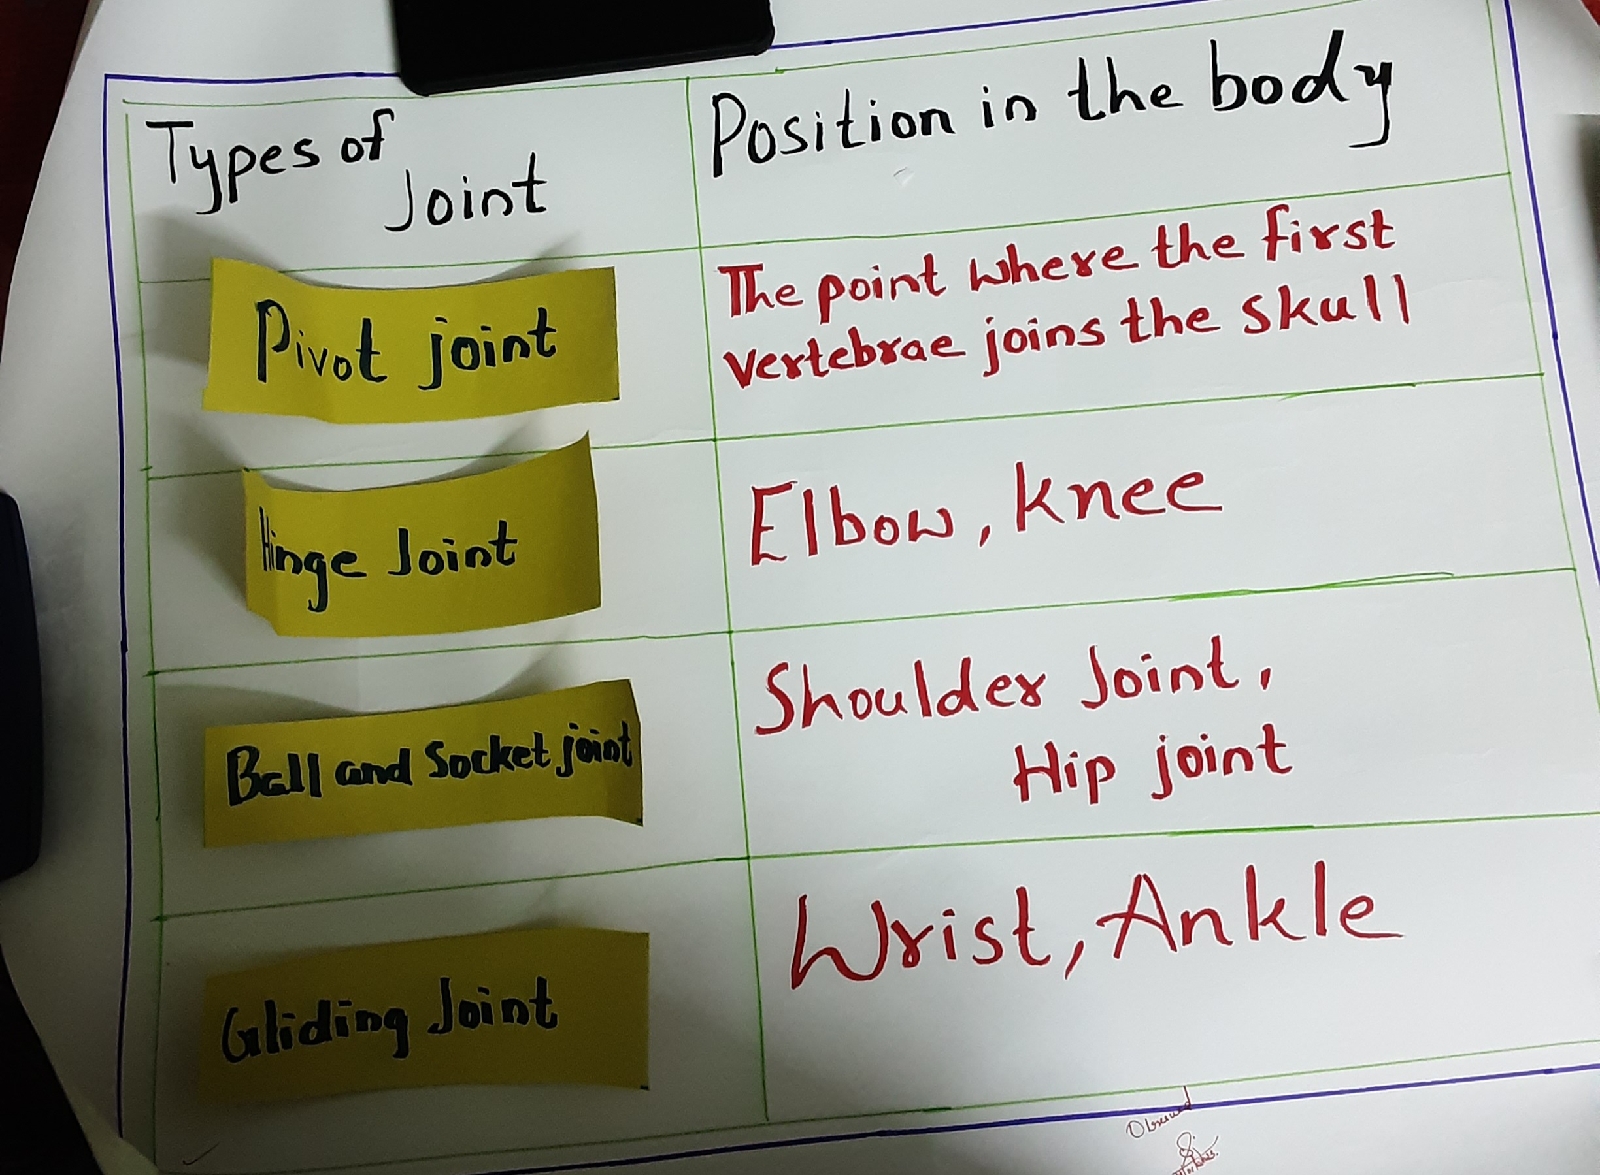 Types of
Joint
Position in the body
Pivot joint
The point where the first
vertebrae joins the skull
Hinge Joint
Elbow, knee
Ball and Socket joint
Shoulder Joint,
Hip joint
Gliding Joint
Wrist, Ankle
Observed